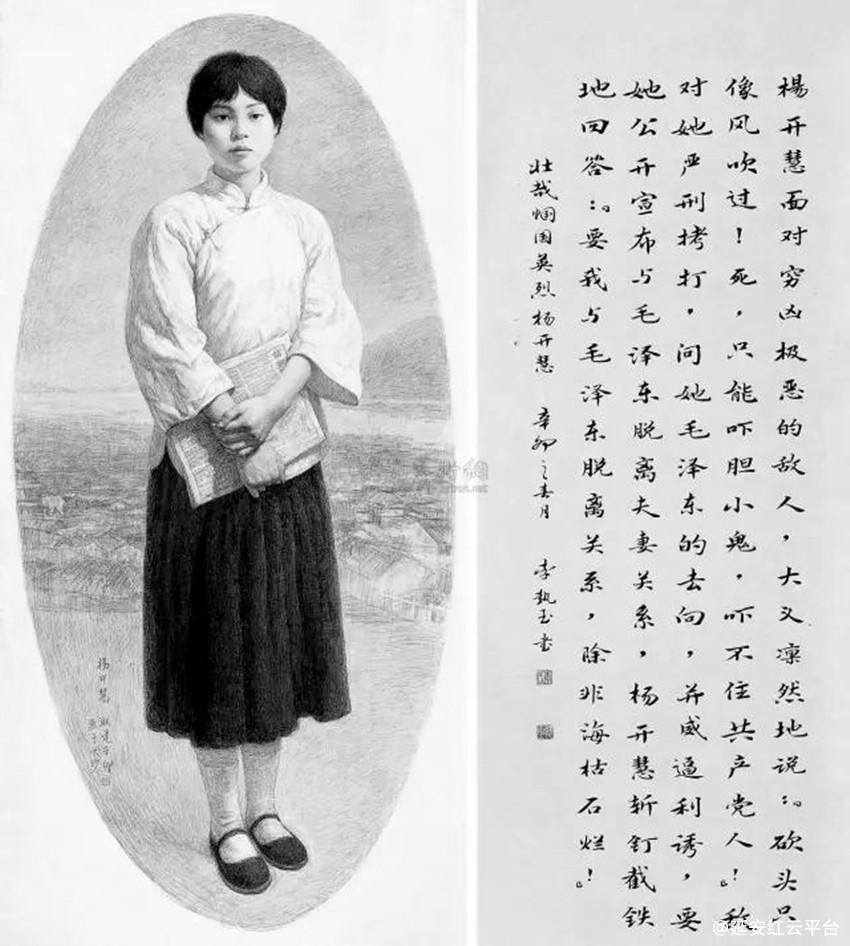 楊开慧面对穷凶极恶的敌人，大义凛然地说：“砍头只
像风吹过！死，只能吓胆小鬼，吓不住共产党人！”敌
对她严刑拷打，问她毛泽东的去向，并威逼利诱，要
她公开宣布与毛泽东脱离夫妻关系，杨开慧斩钉截铁
地回答：“要我与毛泽东脱离关系，除非海枯石烂！”
壮哉 国英烈杨开慧 辛卯之春月 李执玉书
楊开慧
@延安红云平台